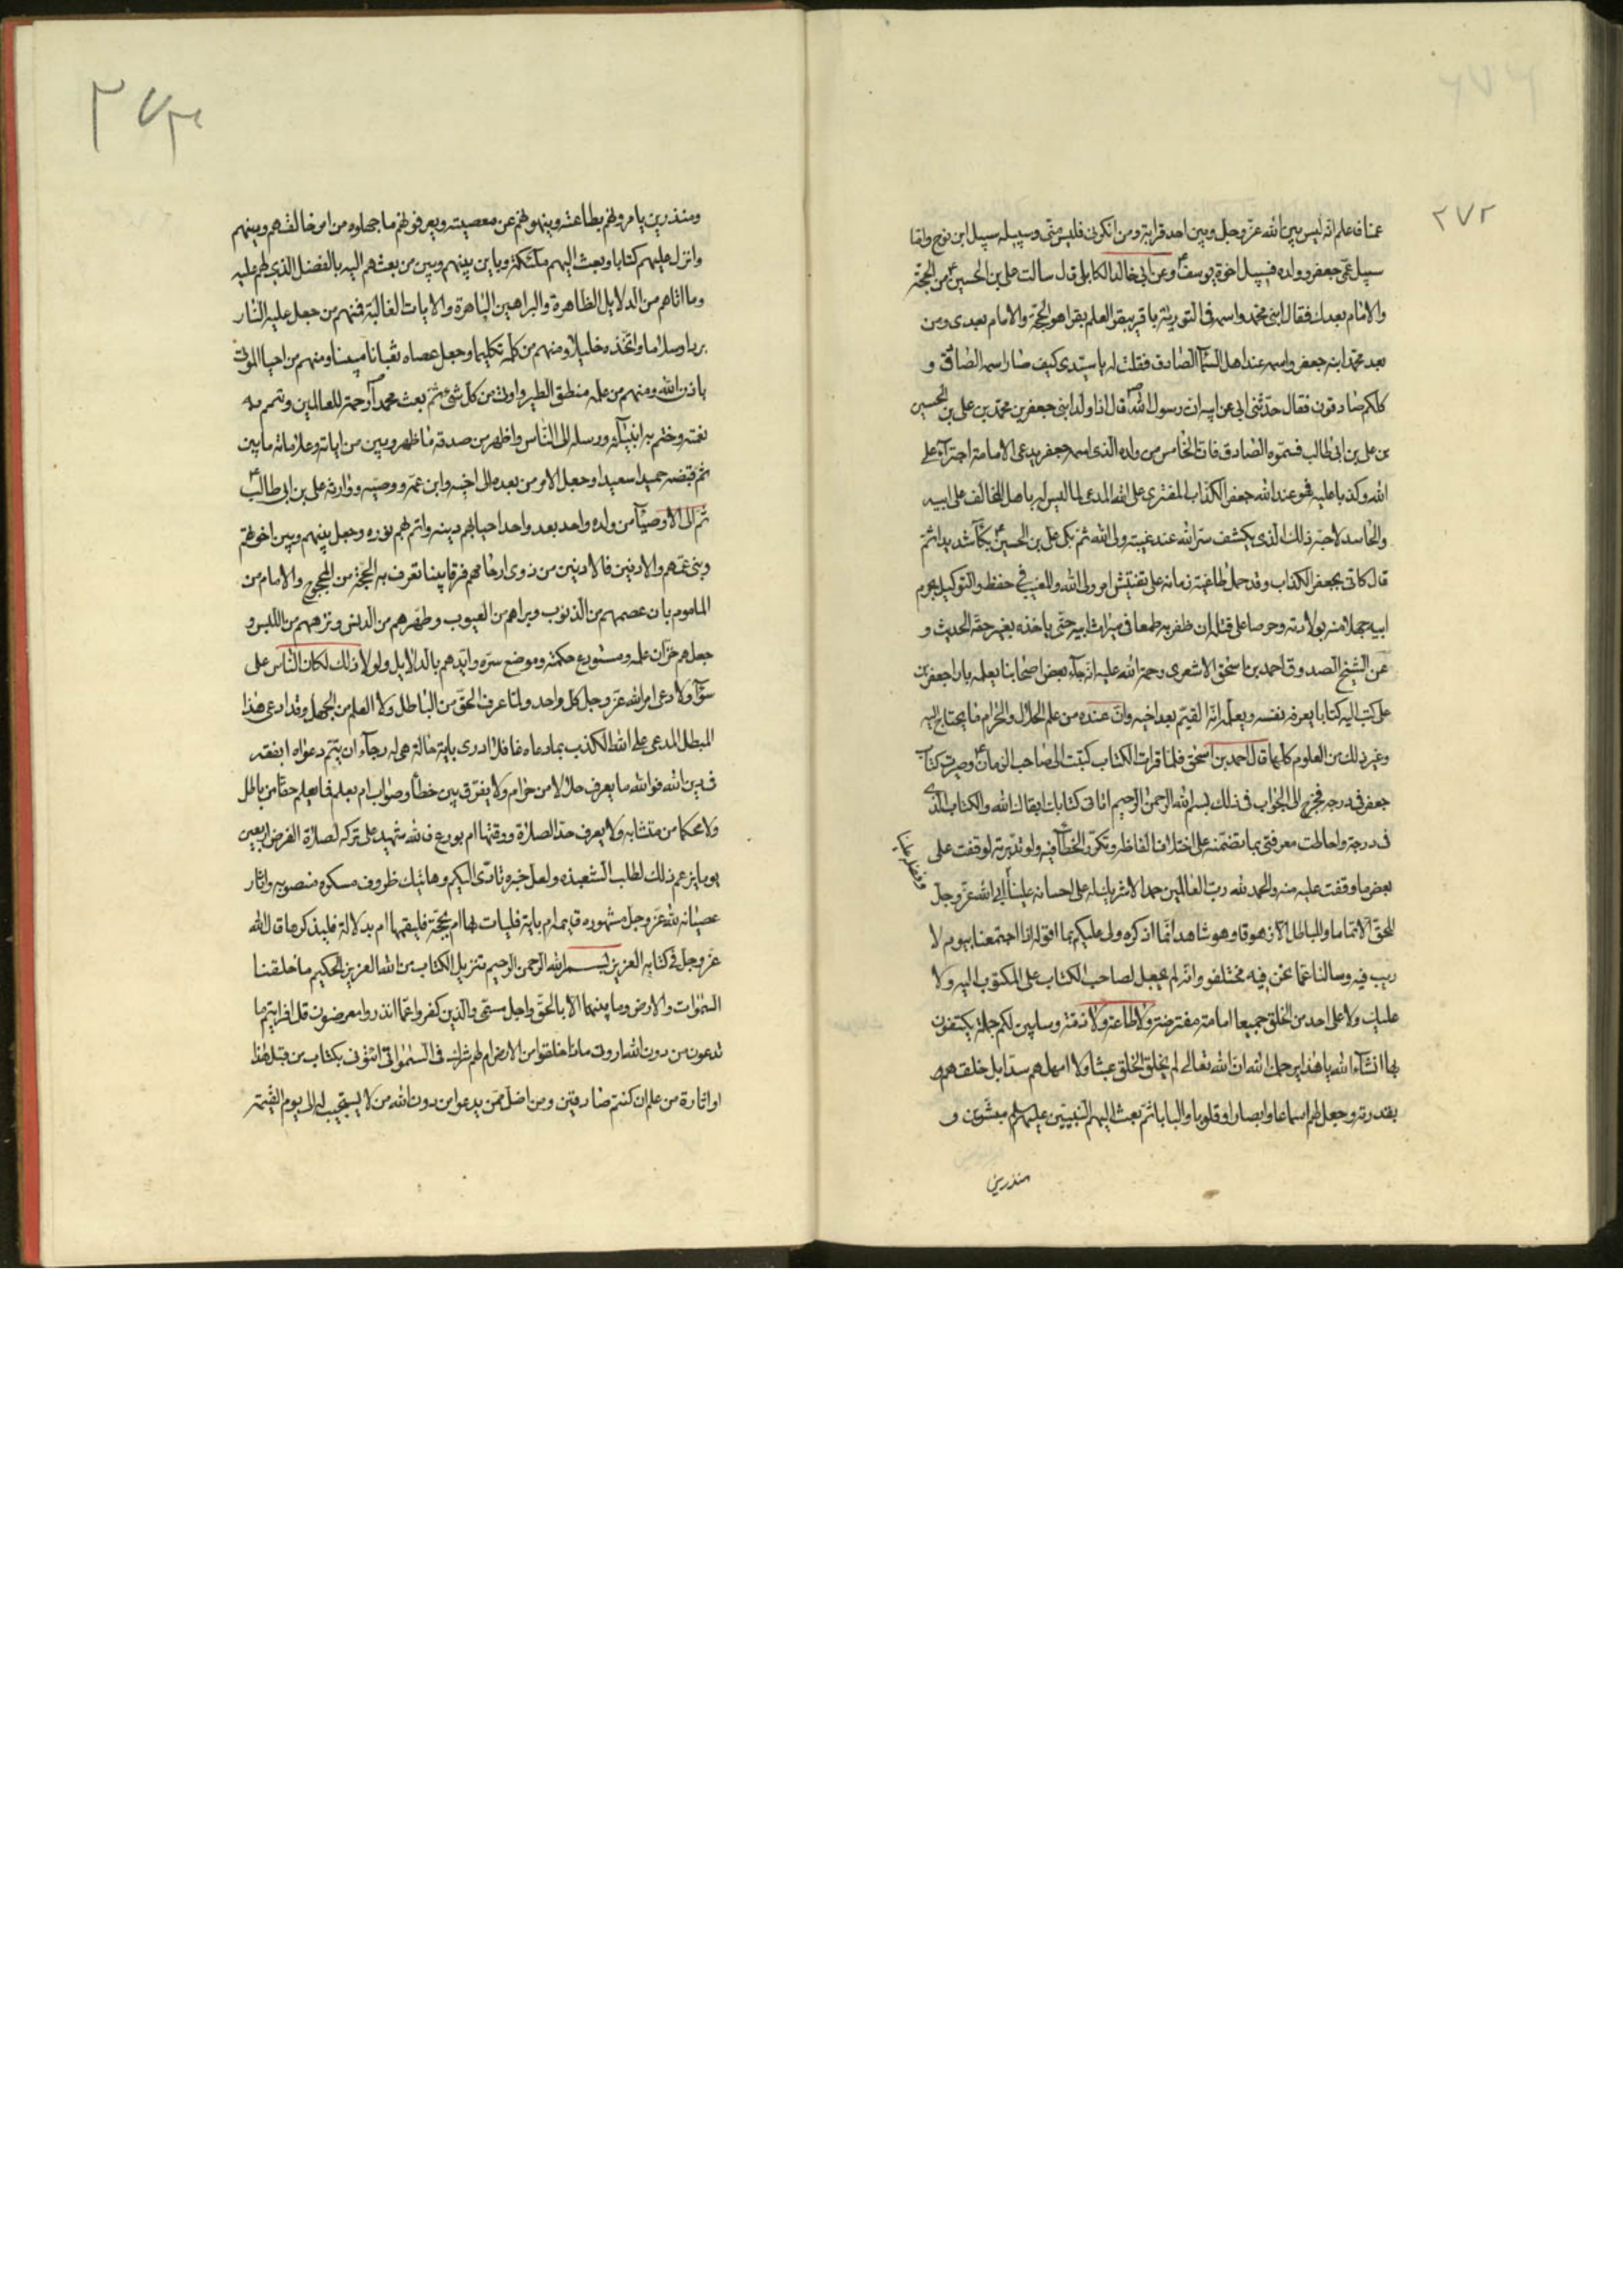 ٢٧٢
عمنا فاعلم انه ليس بين الله عز وجل وبين احد قرابة ومن انكرنى فليس منى وسبيله سبيل ابن نوح واما
سبيل عمى جعفر وولده فسبيل اخوة يوسف ع وعن ابى خالد الكابلى قال سالت على بن الحسين ع من الحجة
والامام بعدك فقال ابنى محمد واسمه فى التورية باقر يبقر العلم بقرا هو الحجة والامام بعدى ومن
بعد محمد ابنه جعفر واسمه عند اهل السمآء الصادق فقلت له يا سيدى كيف صار اسمه الصادق و
كلكم صادقون فقال حدثنى ابى عن ابيه ان رسول الله ص قال اذا ولد ابنى جعفر بن محمد بن على بن الحسين
بن على بن ابى طالب فسموه الصادق فان الخامس من ولده الذى اسمه جعفر يدعى الامامة اجترآء على
الله وكذبا عليه فهو عند الله جعفر الكذاب المفترى على الله المدعى لما ليس له باهل المخالف على ابيه
والحاسد لاخيه ذلك الذى يكشف ستر الله عند غيبته ولى الله ثم بكى على بن الحسين ع بكآء شديدا ثم
قال كانى بجعفر الكذاب وقد حمل طاغية زمانه على تفتيش امر ولى الله والمغيب فى حفظ والتوكيل بحرم
ابيه جهلا منه بولادته وحرصا على قتله ان ظفر به طمعا فى ميراث ابيه حتى ياخذه بغير حقه الحديث و
عن الشيخ الصدوق احمد بن اسحق الاشعرى رحمة الله عليه انه جآءه بعض اصحابنا يعلمه بان جعفر بن
على كتب اليه كتابا يعرفه نفسه ويعلمه انه القيم بعد اخيه وان عنده من علم الحلال والحرام ما يحتاج اليه
وغير ذلك من العلوم كلها قال احمد بن اسحق فلما قرات الكتاب كتبت الى صاحب الزمان ع وصيرت كتاب
جعفر فى درجه فخرج الى الجواب فى ذلك بسم الله الرحمن الرحيم اتانى كتابك ابقاك الله والكتاب الذى
فى درجه واحاطت معرفتى بما تضمنه على اختلاف الفاظه وتكرر الخطآء فيه ولو تدبرته لوقفت على
بعض ما وقفت عليه منه والحمد لله رب العالمين حمدا لا شريك له على احسانه علينا ابى الله عز وجل
وفضله علينا
للحق الا تماما وللباطل الا زهوقا وهو شاهد انما اذكره ولى عليكم بما اقوله اذا اجتمعنا بيوم لا
ريب فيه وسالنا عما نحن فيه مختلفون وانه لم يجعل لصاحب الكتاب على المكتوب اليه ولا
عليك ولا على احد من الخلق جميعا امامة مفترضة ولا طاعة ولا ذمة وسابين لكم جملة يكتفون
بها انشآء الله يا هذا يرحمك الله ان الله تعالى لم يخلق الخلق عبثا ولا امهلهم سدا بل خلقهم
بقدرته وجعل لهم اسماعا وابصارا وقلوبا والبابا ثم بعث اليهم النبيين عليهم سلم مبشرين و
منذرين
٢٧٣
ومنذرين يامرونهم بطاعته وينهونهم عن معصيته ويعرفونهم ما جهلوه من امر خالقهم ودينهم
وانزل عليهم كتابا وبعث اليهم ملئكة وباين بينهم وبين من بعثهم اليه بالفضل الذى لهم عليه
وما اتاهم من الدلايل الظاهرة والبراهين الباهرة والايات الغالبة فمنهم من جعل عليه النار
بردا وسلاما واتخذه خليلا ومنهم من كلمه تكليما وجعل عصاه ثعبانا مبينا ومنهم من احيا الموتى
باذن الله ومنهم من علمه منطق الطير واوتى من كل شئ ثم بعث محمدا ص رحمة للعالمين وتمم به
نعمته وختم به انبيآئه ورسله الى الناس واظهر من صدقه ما ظهر وبين من اياته وعلاماته ما بين
ثم قبضه حميدا سعيدا وجعل الامر من بعده الى اخيه وابن عمه ووصيه ووارثه على بن ابى طالب ع
ثم الى الاوصيآء من ولده واحد بعد واحد احيا بهم دينه واتم بهم نوره وجعل بينهم وبين اخوتهم
وبنى عمهم والادنين فالادنين من ذوى ارحامهم فرقا بينا تعرف به الحجة من المحجوج والامام من
الماموم بان عصمهم من الذنوب وبراهم من العيوب وطهرهم من الدنس ونزههم من اللبس و
جعلهم خزان علمه ومستودع حكمته وموضع سره وايدهم بالدلايل ولولا ذلك لكان الناس على
سوآء ولادعى امر الله عز وجل كل واحد ولما عرف الحق من الباطل ولا العلم من الجهل وقد ادعى هذا
المبطل المدعى على الله الكذب بما دعاه فلا ادرى باية حالة هى له رجآء ان يتم دعواه ابفقه
فى دين الله فوالله ما يعرف حلالا من حرام ولا يفرق بين خطأ وصواب ام بعلم فما يعلم حقا من باطل
ولا محكما من متشابه ولا يعرف حد الصلاة ووقتها ام بورع فالله شهيد على تركه لصلاة الفرض اربعين
يوما يزعم ذلك لطلب الشعبذه ولعل خبره تادى اليكم وهاتيك ظروف مسكره منصوبه واثار
عصيانه لله عز وجل مشهوره قايمه ام باية فليات بها ام بحجة فليقمها ام بدلالة فليذكرها قال الله
عز وجل فى كتابه العزيز بسم الله الرحمن الرحيم تنزيل الكتاب من الله العزيز الحكيم ما خلقنا
السموات والارض وما بينهما الا بالحق واجل مسمى والذين كفروا عما انذروا معرضون قل افرايتم ما
تدعون من دون الله ارونى ماذا خلقوا من الارض ام لهم شرك فى السموات ائتونى بكتاب من قبل هذا
او اثارة من علم ان كنتم صادقين ومن اضل ممن يدعوا من دون الله من لا يستجيب له الى يوم القيمة